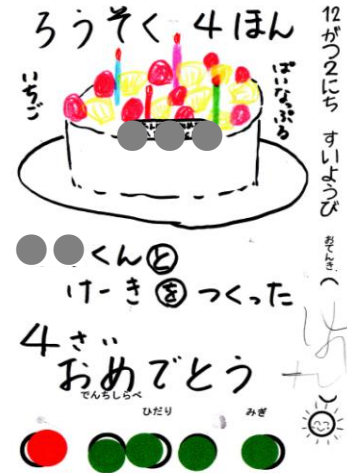 12がつ2にち すいようび
おてんき
ろうそく 4ほん
いちご
ぱいなっぷる
くんと
けーきをつくった
4さい
おめでとう
でんちしらべ
ひだり
みぎ